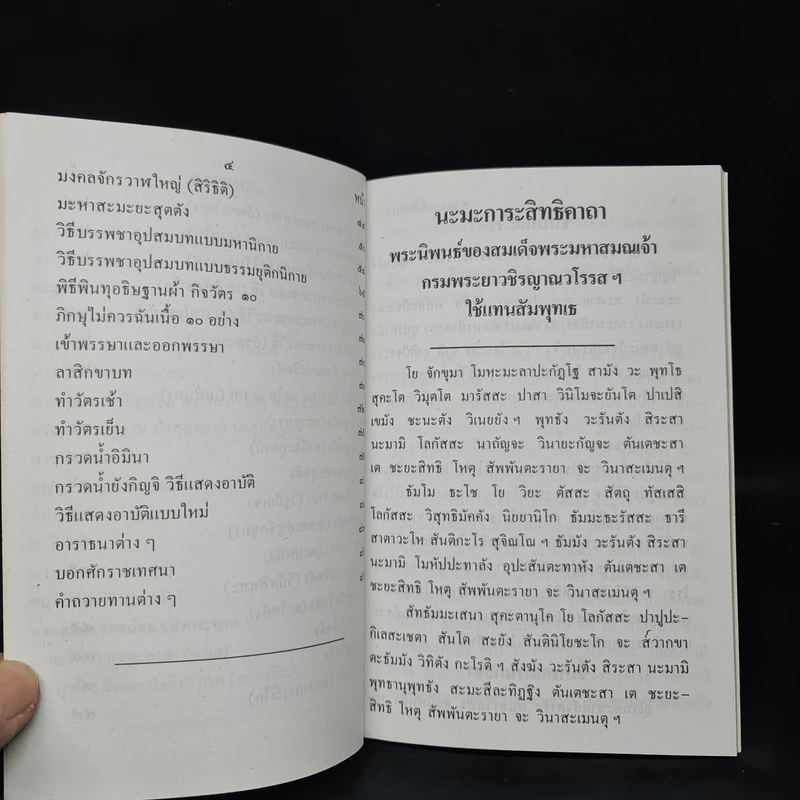 ๔
หน้า
มงคลจักรวาฬใหญ่ (สิริธิติ)
มะหาสะมะยะสุตตัง
วิธีบรรพชาอุปสมบทแบบมหานิกาย
วิธีบรรพชาอุปสมบทแบบธรรมยุติกนิกาย
พิธีพินทุอธิษฐานผ้า กิจวัตร ๑๐
ภิกษุไม่ควรฉันเนื้อ ๑๐ อย่าง
เข้าพรรษาและออกพรรษา
ลาสิกขาบท
ทำวัตรเช้า
ทำวัตรเย็น
กรวดน้ำอิมินา
กรวดน้ำยังกิญจิ วิธีแสดงอาบัติ
วิธีแสดงอาบัติแบบใหม่
อาราธนาต่าง ๆ
บอกศักราชเทศนา
คำถวายทานต่าง ๆ
นะมะการะสิทธิคาถา
พระนิพนธ์ของสมเด็จพระมหาสมณเจ้า
กรมพระยาวชิรญาณวโรรส ฯ
ใช้แทนสัมพุทเธ
โย จักขุมา โมหะมะลาปะกัฏโฐ สามัง วะ พุทโธ
สุคะโต วิมุตโต มารัสสะ ปาสา วินิโมจะยันโต ปาเปสิ
เขมัง ชะนะตัง วิเนยยัง ฯ พุทธัง วะรันตัง สิระสา
นะมามิ โลกัสสะ นาถัญจะ วินายะกัญจะ ตันเตชะสา
เต ชะยะสิทธิ โหตุ สัพพันตะรายา จะ วินาสะเมนตุ ฯ
ธัมโม ธะโช โย วิยะ ตัสสะ สัตถุ ทัสเสสิ
โลกัสสะ วิสุทธิมัคคัง นิยยานิโก ธัมมะธะรัสสะ ธารี
สาตาวะโห สันติกะโร สุจิณโณ ฯ ธัมมัง วะรันตัง สิระสา
นะมามิ โมหัปปะทาลัง อุปะสันตะทาหัง ตันเตชะสา เต
ชะยะสิทธิ โหตุ สัพพันตะรายา จะ วินาสะเมนตุ ฯ
สัทธัมมะเสนา สุคะตานุโค โย โลกัสสะ ปาปูปะ-
กิเลสะเชตา สันโต สะยัง สันตินิโยชะโก จะ ส๎วากขา
ตะธัมมัง วิทิตัง กะโรติ ฯ สังฆัง วะรันตัง สิระสา นะมามิ
พุทธานุพุทธัง สะมะสีละทิฏฐิง ตันเตชะสา เต ชะยะ-
สิทธิ โหตุ สัพพันตะรายา จะ วินาสะเมนตุ ฯ